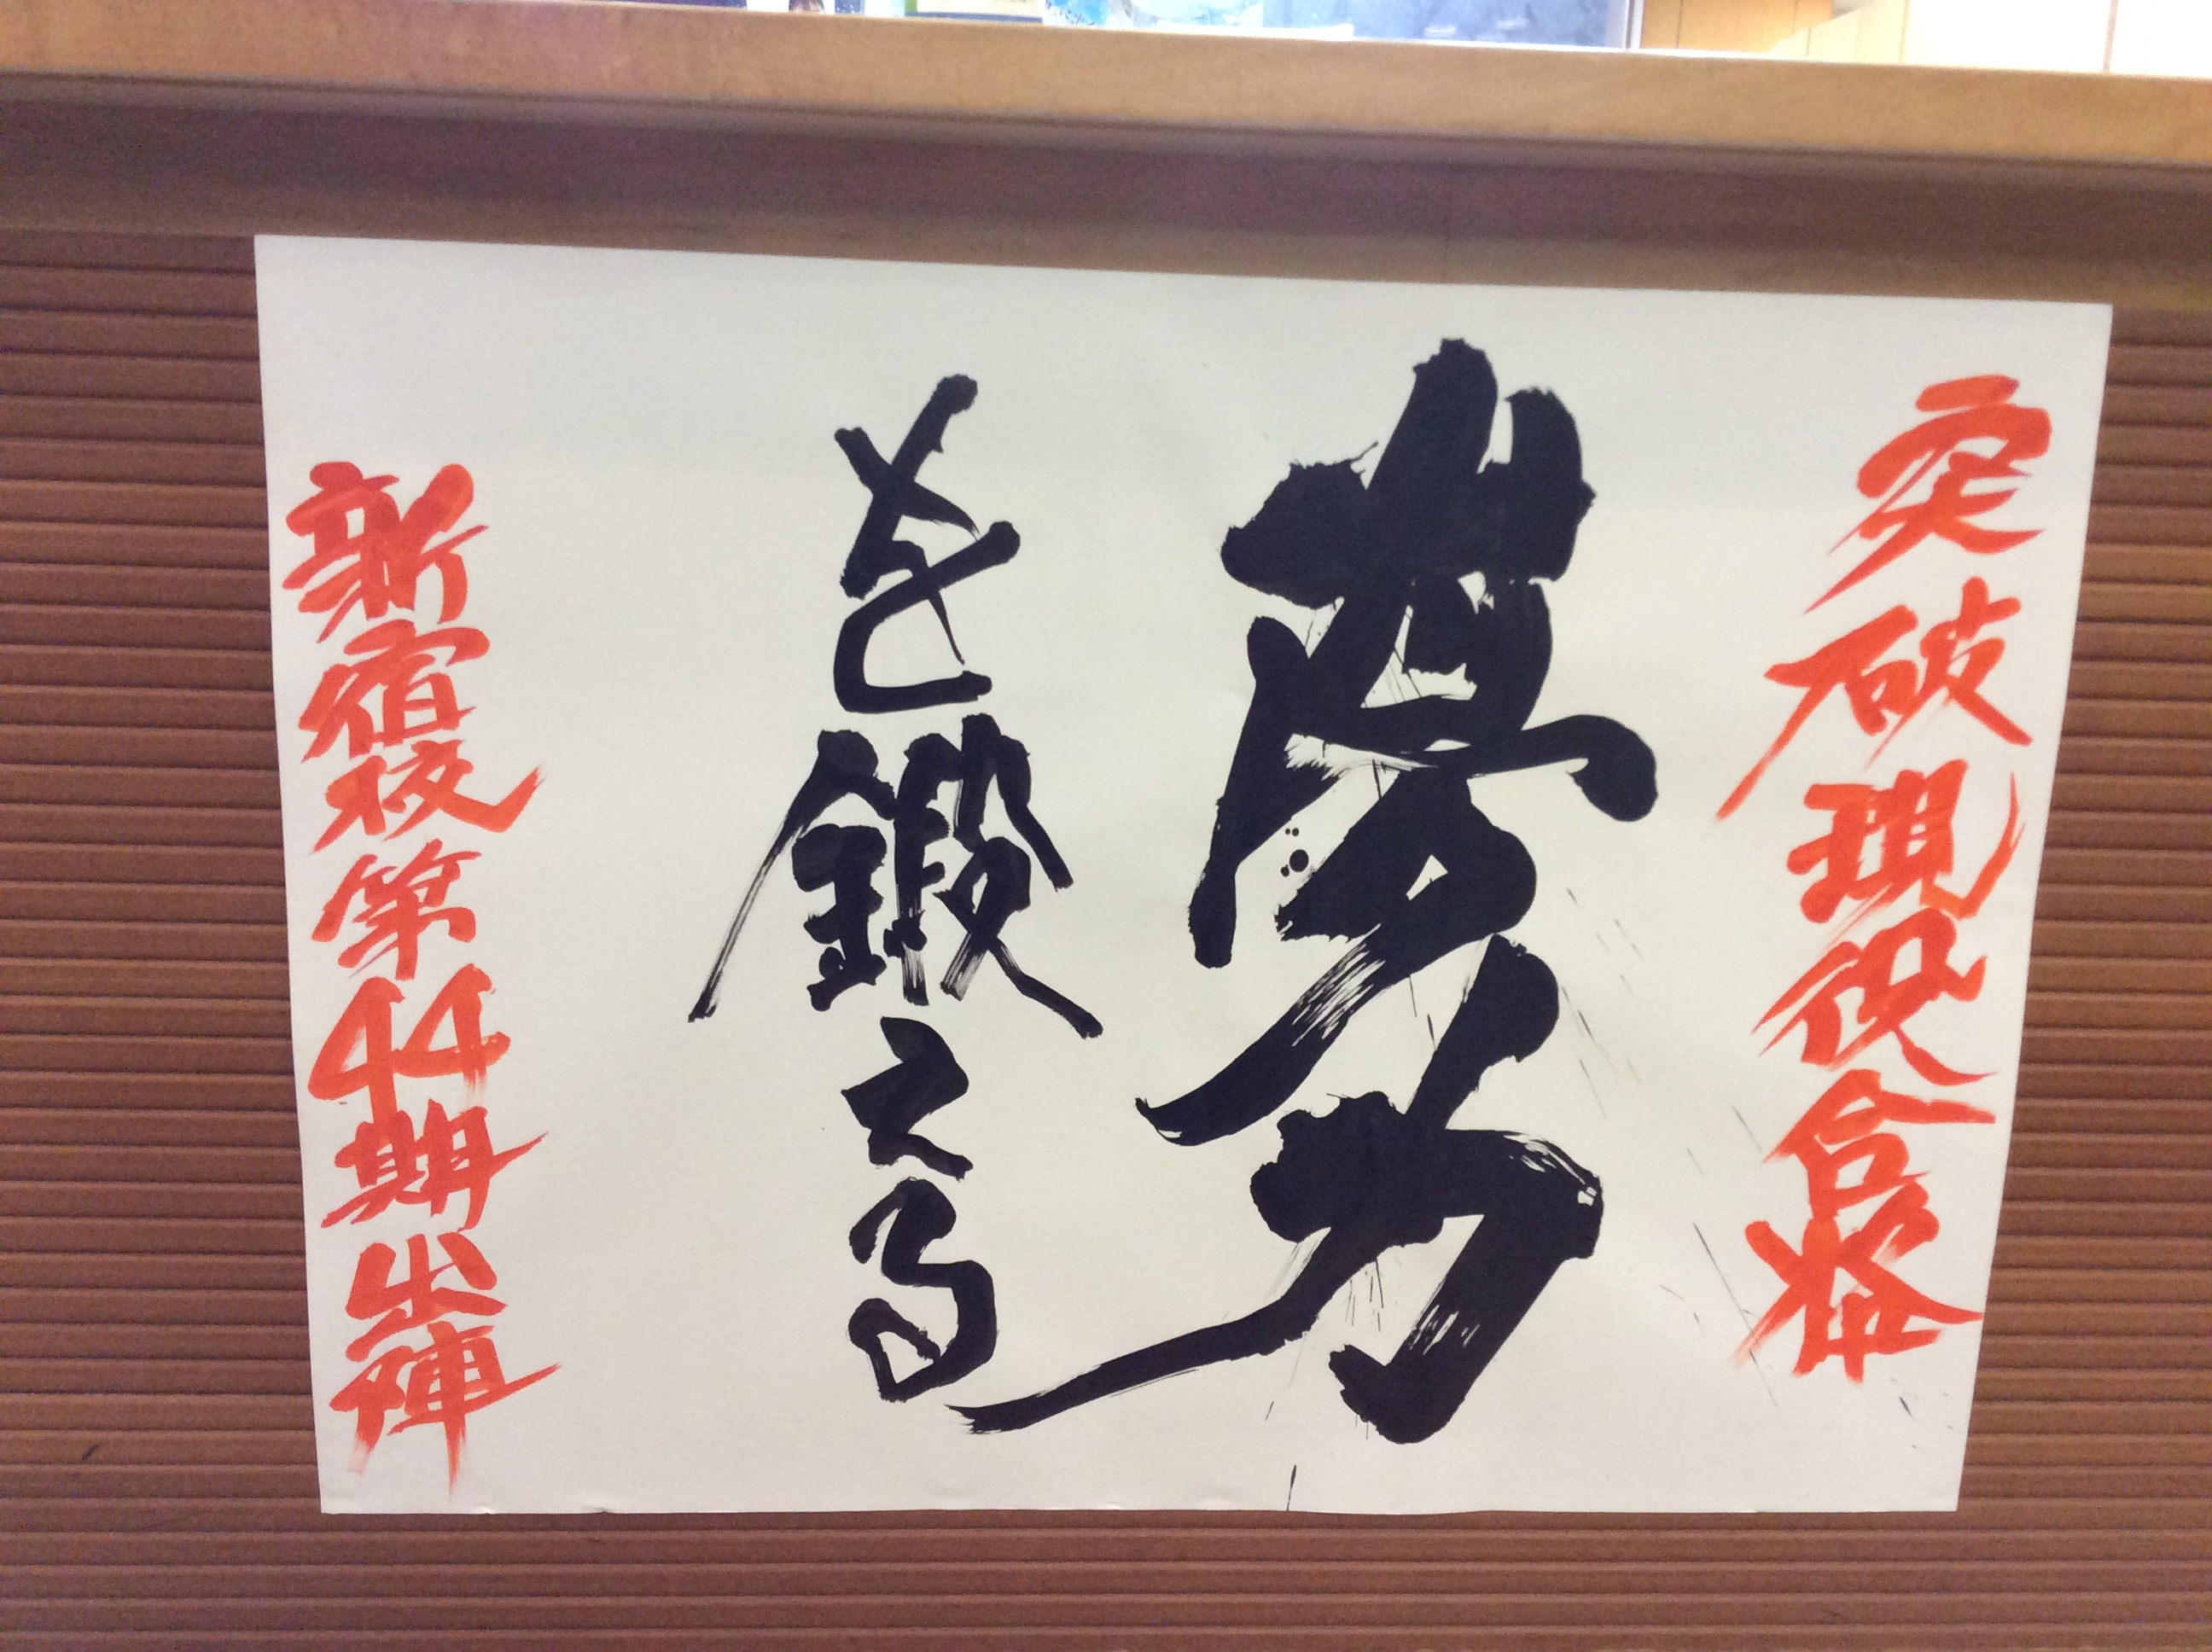 突破現役合格
夢力
を鍛える
新宿校第44期出陣